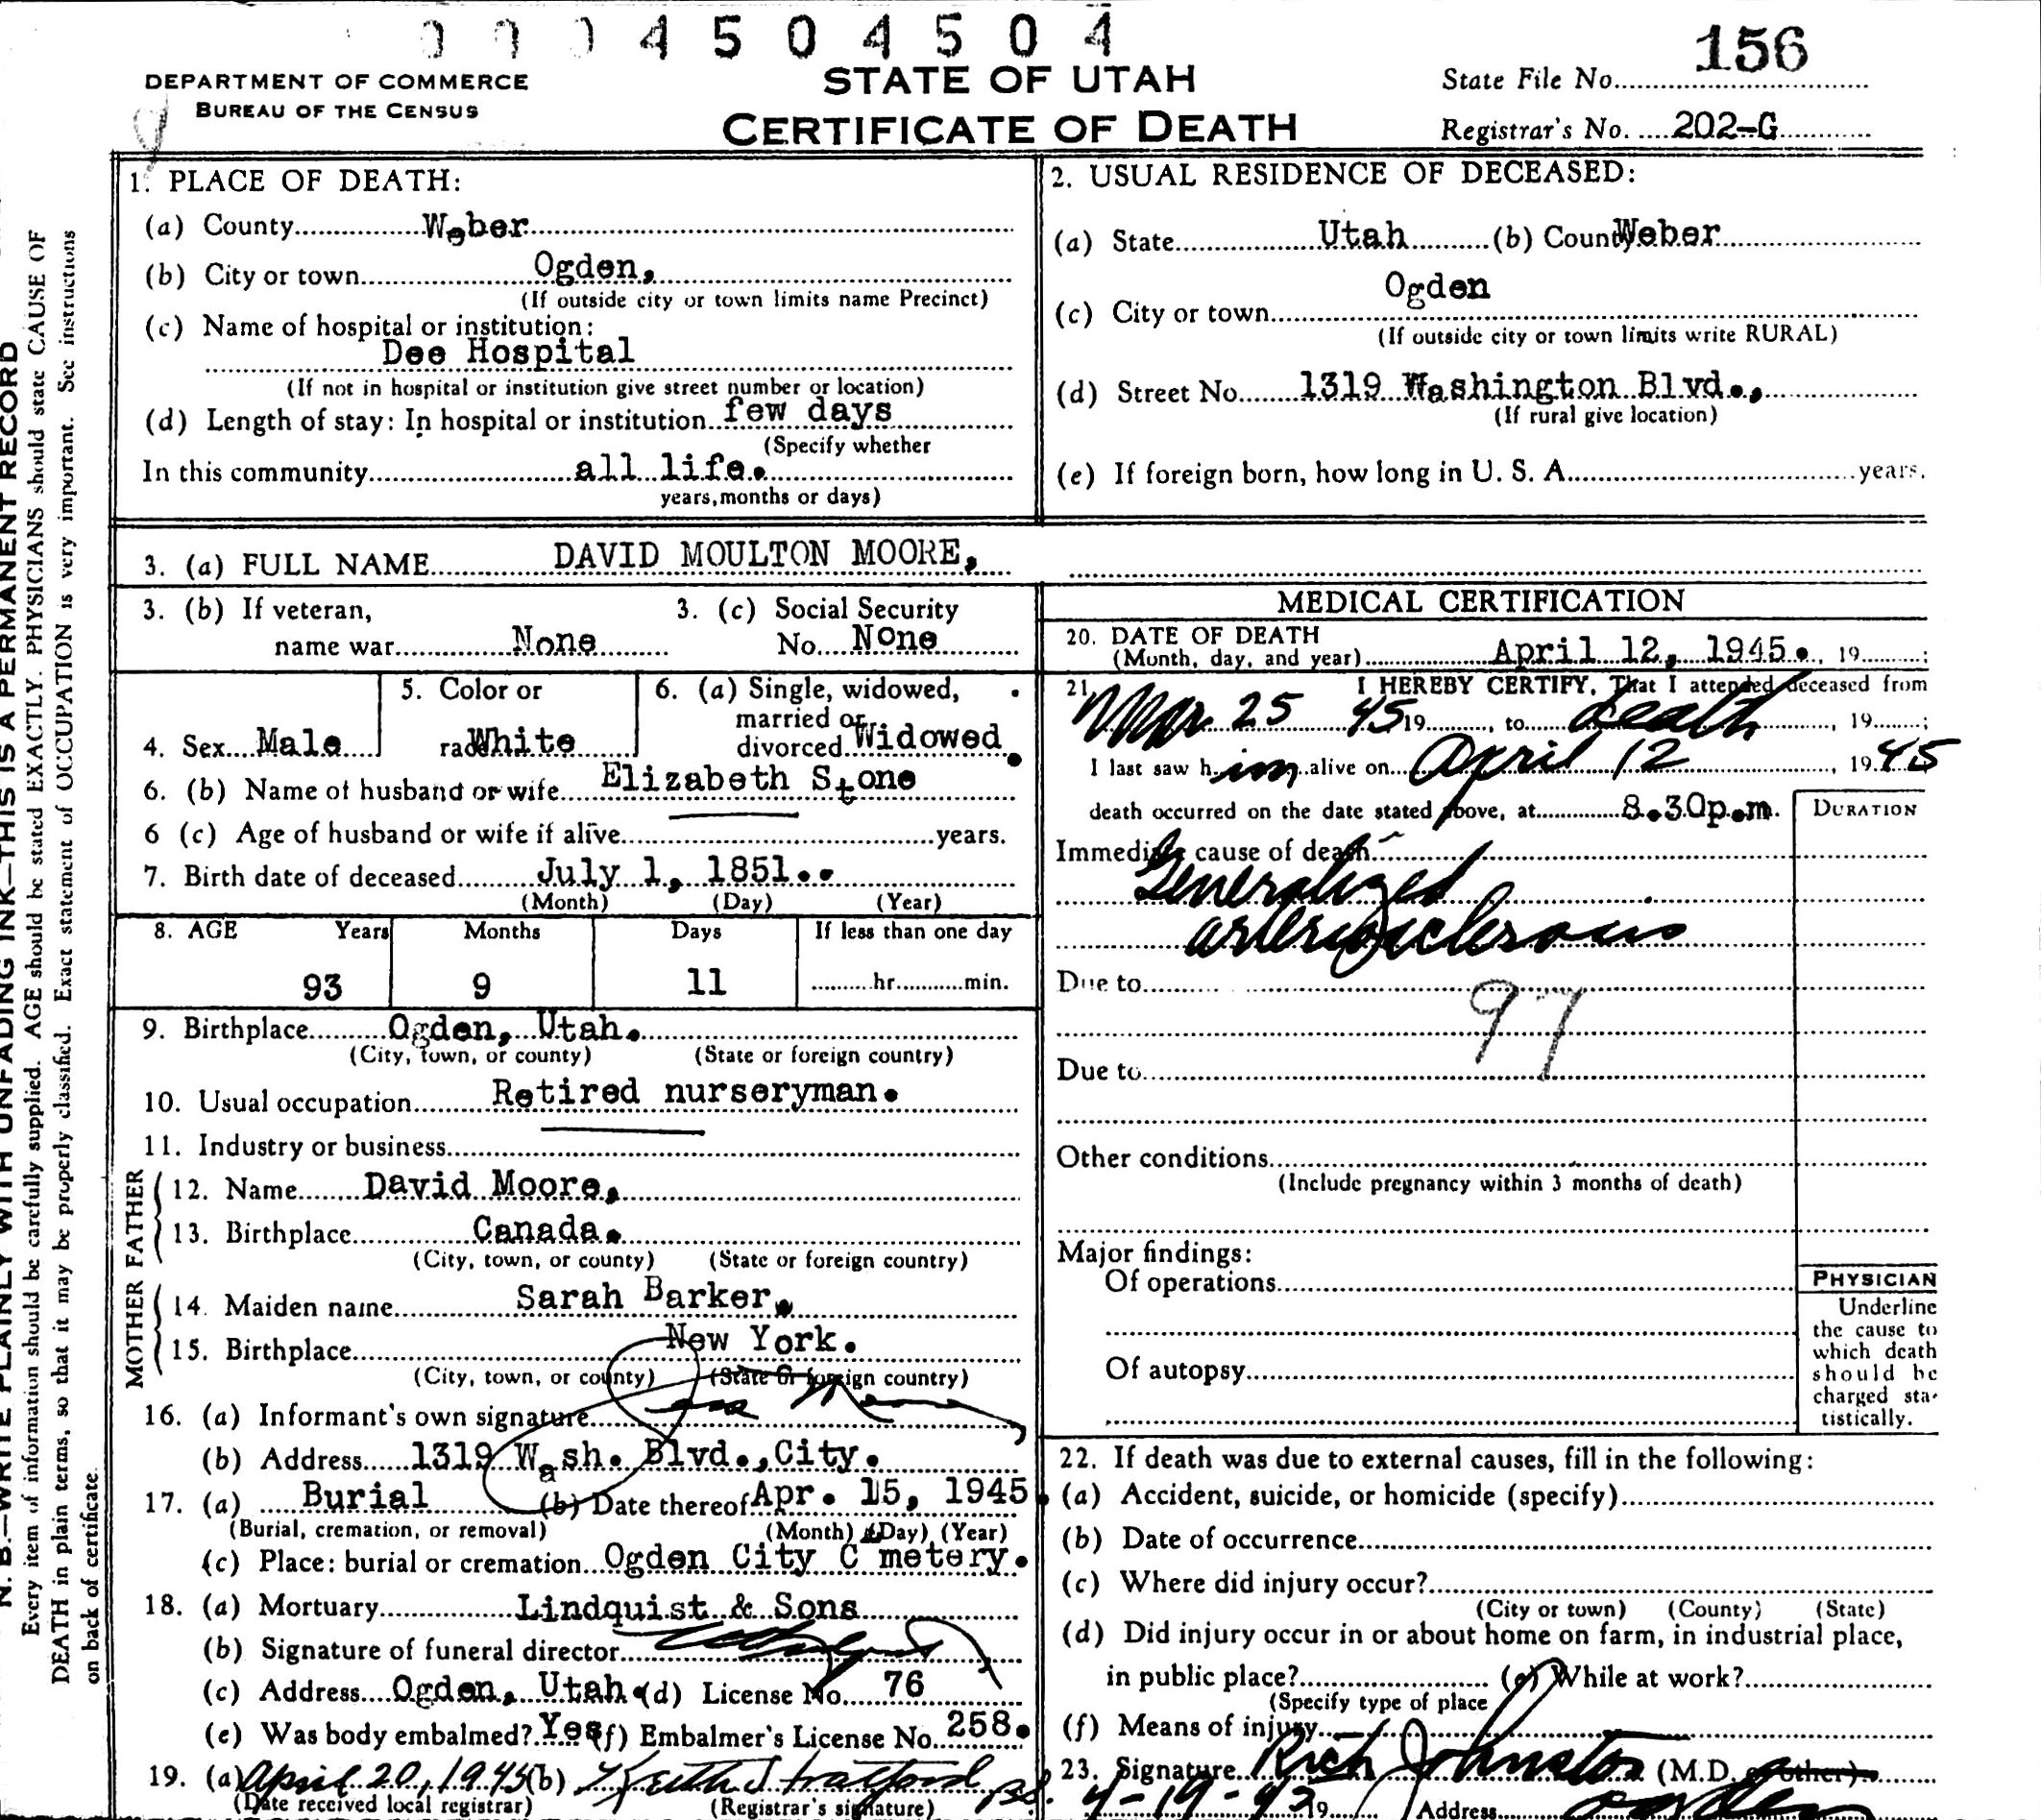 0004504504
156
DEPARTMENT OF COMMERCE
BUREAU OF THE CENSUS
STATE OF UTAH
CERTIFICATE OF DEATH
State File No.
Registrar's No. 202-G
N. B.—WRITE PLAINLY WITH UNFADING INK—THIS IS A PERMANENT RECORD
Every item of information should be carefully supplied. AGE should be stated EXACTLY. PHYSICIANS should state CAUSE OF
DEATH in plain terms, so that it may be properly classified. Exact statement of OCCUPATION is very important. See instructions
on back of certificate.
1. PLACE OF DEATH:
(a) County Weber
(b) City or town Ogden,
(If outside city or town limits name Precinct)
(c) Name of hospital or institution:
Dee Hospital
(If not in hospital or institution give street number or location)
(d) Length of stay: In hospital or institution few days
(Specify whether
In this community all life.
years, months or days)
2. USUAL RESIDENCE OF DECEASED:
(a) State Utah (b) County Weber
Ogden
(c) City or town
(If outside city or town limits write RURAL)
(d) Street No. 1319 Washington Blvd.,
(If rural give location)
(e) If foreign born, how long in U. S. A. years.
3. (a) FULL NAME DAVID MOULTON MOORE,
3. (b) If veteran,
name war None
3. (c) Social Security
No. None
4. Sex Male
5. Color or
race White
6. (a) Single, widowed,
married or
divorced Widowed
6. (b) Name of husband or wife Elizabeth Stone
6 (c) Age of husband or wife if alive years.
7. Birth date of deceased July 1, 1851..
(Month) (Day) (Year)
8. AGE Years Months Days If less than one day
93 9 11 hr. min.
9. Birthplace Ogden, Utah.
(City, town, or county) (State or foreign country)
10. Usual occupation Retired nurseryman.
11. Industry or business
FATHER
12. Name David Moore,
13. Birthplace Canada.
(City, town, or county) (State or foreign country)
MOTHER
14. Maiden name Sarah Barker.
15. Birthplace New York.
(City, town, or county) (State or foreign country)
16. (a) Informant's own signature
(b) Address 1319 Wash. Blvd., City.
17. (a) Burial (b) Date thereof Apr. 15, 1945.
(Burial, cremation, or removal) (Month) (Day) (Year)
(c) Place: burial or cremation Ogden City C metery.
18. (a) Mortuary Lindquist & Sons
(b) Signature of funeral director
(c) Address Ogden, Utah. (d) License No. 76
(e) Was body embalmed? Yes (f) Embalmer's License No. 258.
19. (a) April 20, 1945 (b) Keith Stratford
(Date received local registrar) (Registrar's signature)
MEDICAL CERTIFICATION
20. DATE OF DEATH
(Month, day, and year) April 12, 1945. , 19 ;
21. I HEREBY CERTIFY, That I attended deceased from
Mar 25 45 19 , to death , 19 ;
I last saw h im alive on April 12 , 19 45
death occurred on the date stated above, at 8.30p.m.
DURATION
Immediate cause of death
Generalized
arteriosclerosis
Due to
97
Due to
Other conditions
(Include pregnancy within 3 months of death)
Major findings:
Of operations
Of autopsy
PHYSICIAN
Underline
the cause to
which death
should be
charged sta-
tistically.
22. If death was due to external causes, fill in the following:
(a) Accident, suicide, or homicide (specify)
(b) Date of occurrence
(c) Where did injury occur?
(City or town) (County) (State)
(d) Did injury occur in or about home on farm, in industrial place,
in public place? (e) While at work?
(Specify type of place
(f) Means of injury
23. Signature Rich Johnston (M.D. or other)
19 Address Ogden